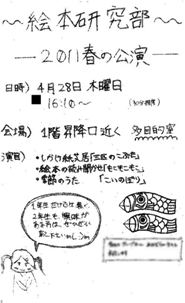 ～絵本研究部～
―2011春の公演―
日時) 4月28日 木曜日
■ 16:10～
会場) 1階昇降口近く 多目的室
演目)
・しかけ紙芝居「三匹のこぶた」
・絵本の読み聞かせ「もこもこもこ」
・季節のうた 「こいのぼり」
1年生だけじゃなく、
2年生も、興味が
ある方は、ぜひぜひ